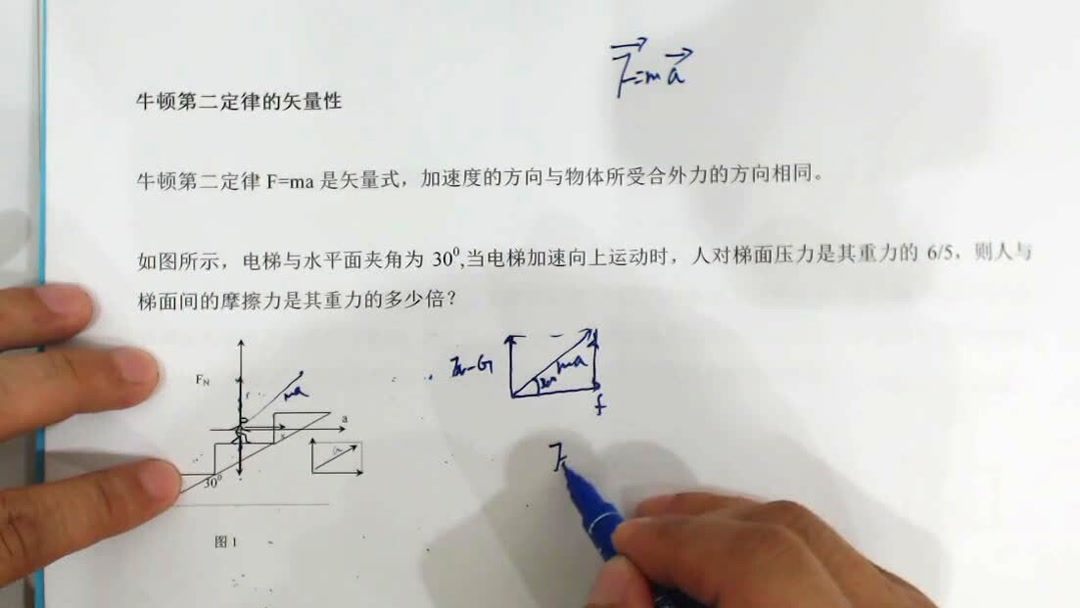 F=ma
牛顿第二定律的矢量性
牛顿第二定律 F=ma 是矢量式，加速度的方向与物体所受合外力的方向相同。
如图所示，电梯与水平面夹角为 30⁰,当电梯加速向上运动时，人对梯面压力是其重力的 6/5，则人与
梯面间的摩擦力是其重力的多少倍？
FN-G
ma
30°
f
F
FN
ma
a
30⁰
图 1